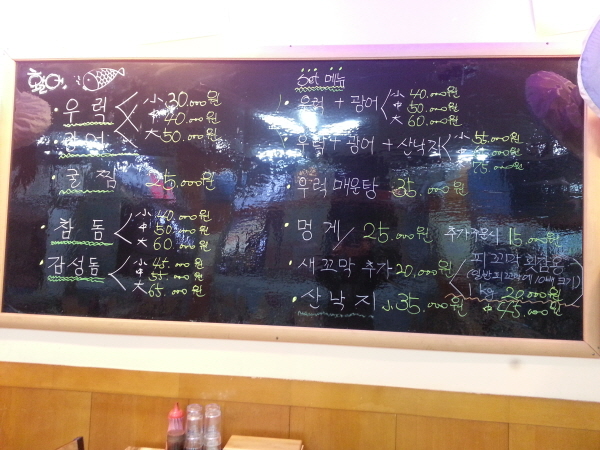 활어
· 우럭 < 小 30.000원
中 40.000원
大 50.000원
· 광어 <
· 굴찜 25.000원
· 참돔 < 小 40.000원
中 50.000원
大 60.000원
· 감성돔 < 小 45.000원
中 55.000원
大 65.000원
Set 메뉴
· 우럭 + 광어 < 小 40.000원
中 50.000원
大 60.000원
· 우럭 + 광어 + 산낙지 < 小 55.000원
中 000원
大 75.000원
· 우럭 매운탕 35.000원
· 멍게 / 25.000원 추가주문시 15.000원
· 새꼬막 추가 20,000원 < 피꼬막 회감용
(일반피꼬막에 10배 크기)
1kg 20.000원
· 산낙지 小 35.000원 中 45.000원